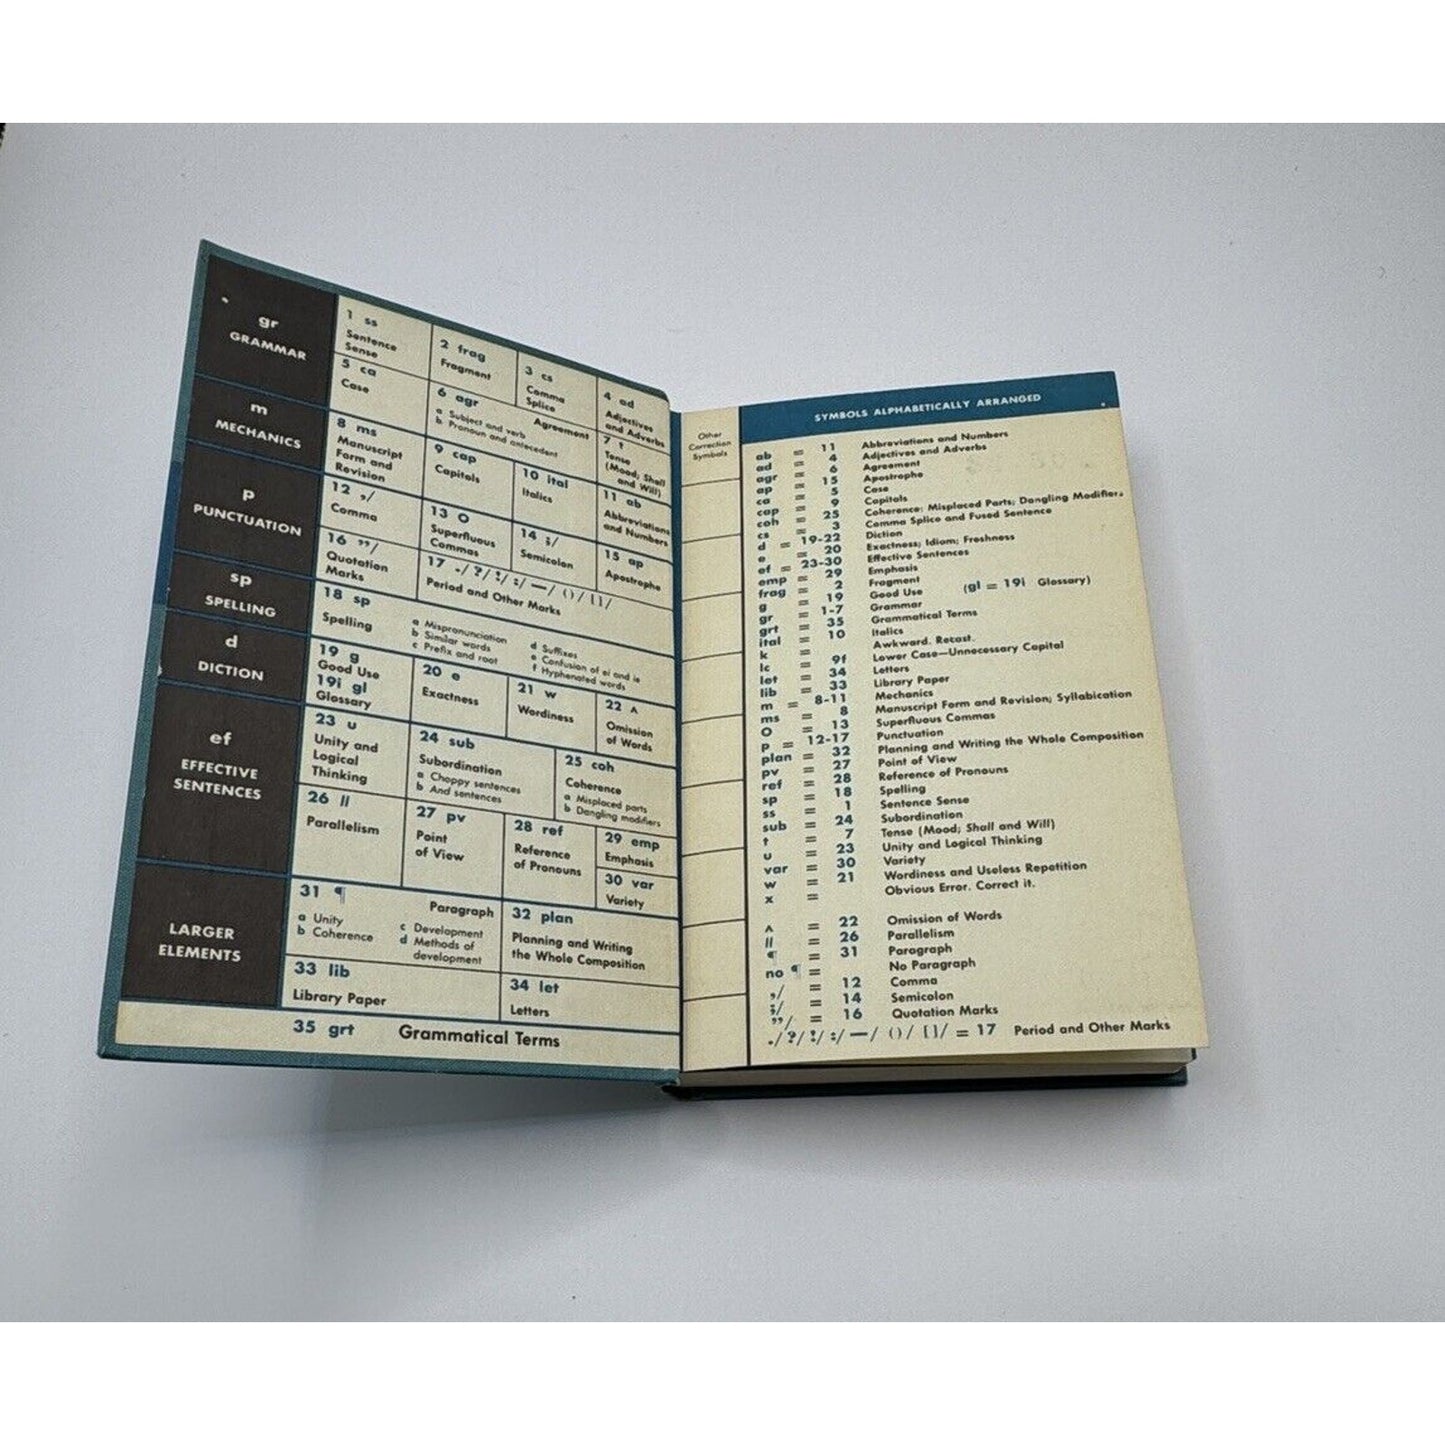 gr
GRAMMAR
1 ss
Sentence
Sense
2 frag
Fragment
3 cs
Comma
Splice
4 ad
Adjectives
and Adverbs
5 ca
Case
6 agr
Agreement
a Subject and verb
b Pronoun and antecedent
7 t
Tense
(Mood; Shall
and Will)
m
MECHANICS
8 ms
Manuscript
Form and
Revision
9 cap
Capitals
10 ital
Italics
11 ab
Abbreviations
and Numbers
p
PUNCTUATION
12 ,/
Comma
13 O
Superfluous
Commas
14 ;/
Semicolon
15 ap
Apostrophe
16 ”/
Quotation
Marks
17 ./ ?/ !/ :/ —/ ()/ []/
Period and Other Marks
sp
SPELLING
18 sp
Spelling
a Mispronunciation
b Similar words
c Prefix and root
d Suffixes
e Confusion of ei and ie
f Hyphenated words
d
DICTION
19 g
Good Use
19i gl
Glossary
20 e
Exactness
21 w
Wordiness
22 ʌ
Omission
of Words
ef
EFFECTIVE
SENTENCES
23 u
Unity and
Logical
Thinking
24 sub
Subordination
a Choppy sentences
b And sentences
25 coh
Coherence
a Misplaced parts
b Dangling modifiers
26 //
Parallelism
27 pv
Point
of View
28 ref
Reference
of Pronouns
29 emp
Emphasis
30 var
Variety
LARGER
ELEMENTS
31 ¶
Paragraph
a Unity
b Coherence
c Development
d Methods of
development
32 plan
Planning and Writing
the Whole Composition
33 lib
Library Paper
34 let
Letters
35 grt Grammatical Terms
Other
Correction
Symbols
SYMBOLS ALPHABETICALLY ARRANGED
ab = 11 Abbreviations and Numbers
ad = 4 Adjectives and Adverbs
agr = 6 Agreement
ap = 15 Apostrophe
ca = 5 Case
cap = 9 Capitals
coh = 25 Coherence: Misplaced Parts; Dangling Modifiers
cs = 3 Comma Splice and Fused Sentence
d = 19-22 Diction
e = 20 Exactness; Idiom; Freshness
ef = 23-30 Effective Sentences
emp = 29 Emphasis
frag = 2 Fragment
g = 19 Good Use (gl = 19i Glossary)
gr = 1-7 Grammar
grt = 35 Grammatical Terms
ital = 10 Italics
k = Awkward. Recast.
lc = 9f Lower Case—Unnecessary Capital
let = 34 Letters
lib = 33 Library Paper
m = 8-11 Mechanics
ms = 8 Manuscript Form and Revision; Syllabication
O = 13 Superfluous Commas
p = 12-17 Punctuation
plan = 32 Planning and Writing the Whole Composition
pv = 27 Point of View
ref = 28 Reference of Pronouns
sp = 18 Spelling
ss = 1 Sentence Sense
sub = 24 Subordination
t = 7 Tense (Mood; Shall and Will)
u = 23 Unity and Logical Thinking
var = 30 Variety
w = 21 Wordiness and Useless Repetition
x = Obvious Error. Correct it.
ʌ = 22 Omission of Words
// = 26 Parallelism
¶ = 31 Paragraph
no ¶ = No Paragraph
,/ = 12 Comma
;/ = 14 Semicolon
”/ = 16 Quotation Marks
./ ?/ !/ :/ —/ ()/ []/ = 17 Period and Other Marks